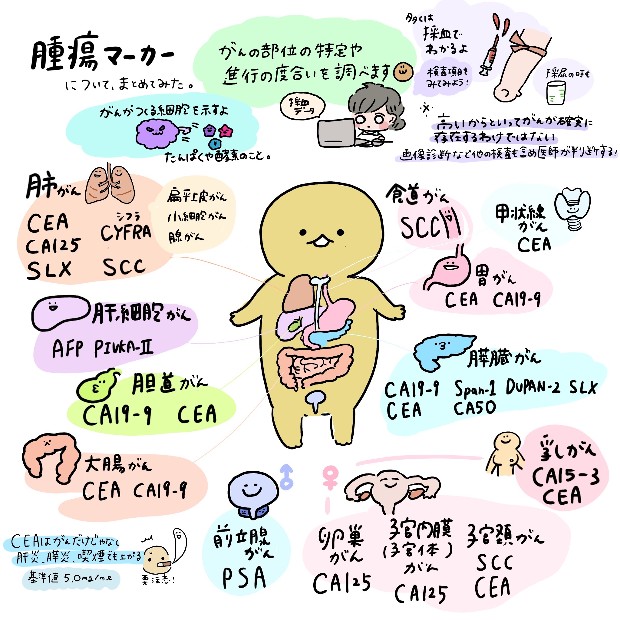 腫瘍マーカー
について、まとめてみた。
がんの部位の特定や
進行の度合いを調べます
多くは
採血で
わかるよ
検査項目も
みてみよう!
採尿の時も
がんがつくる細胞を示すよ
たんぱくや酵素のこと。
採血
データ
※
高いからといってがんが確実に
存在するわけではない
画像診断など他の検査も含め医師が判断する!
肺がん
CEA
シフラ
CYFRA
CA125
SLX
SCC
扁平上皮がん
小細胞がん
腺がん
食道がん
SCC
甲状線
がん
CEA
胃がん
CEA CA19-9
肝細胞がん
AFP PIVKA-II
胆道がん
CA19-9 CEA
膵臓がん
CA19-9 Span-1 DUPAN-2 SLX
CEA CA50
大腸がん
CEA CA19-9
乳がん
CA15-3
CEA
♂
前立腺
がん
PSA
♀
卵巣
がん
CA125
子宮内膜
(子宮体)
がん
CA125
子宮頚がん
SCC
CEA
CEAはがんだけじゃなく
肝炎、膵炎、喫煙でも上がる
基準値 5.0mg/ml
要注意!